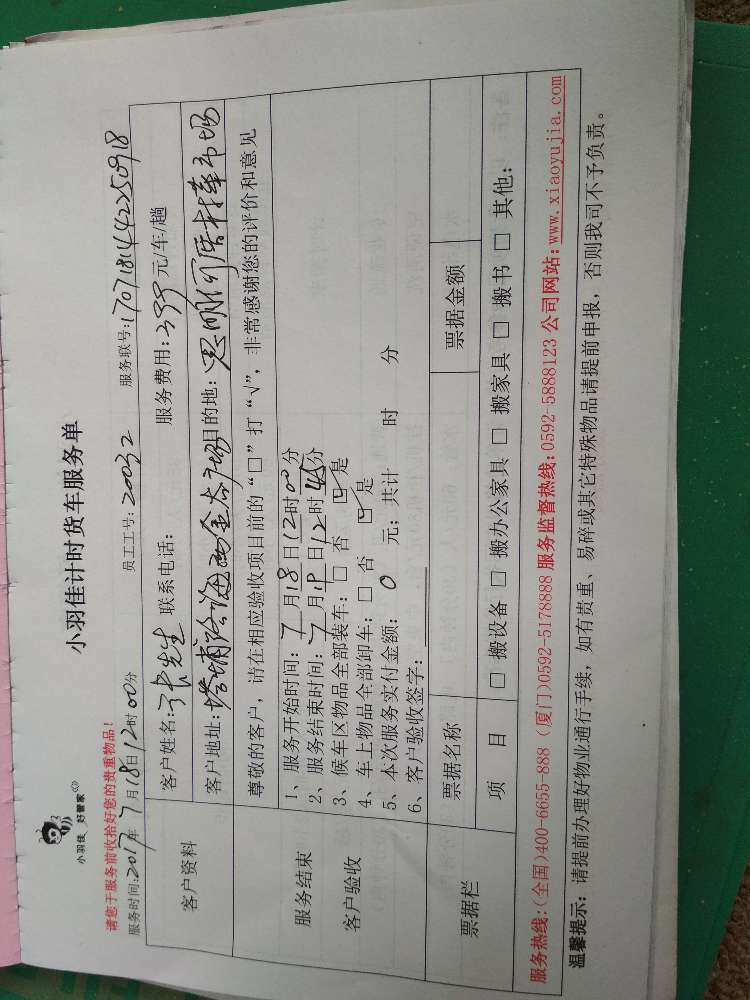 小羽佳 好管家
小羽佳计时货车服务单
请您于服务前收拾好您的贵重物品！
服务时间:2017年7月18日12时00分 员工工号:20032 服务联号:1707181442250918
客户资料
客户姓名:张先生 联系电话: 服务费用:399元/车/趟
客户地址:塔埔路海西金谷广场目的地:思明何厝卡车市场
服务结束
客户验收
尊敬的客户，请在相应验收项目前的“□”打“√”，非常感谢您的评价和意见
1、服务开始时间:7月18日12时00分
2、服务结束时间:7月18日12时45分
3、候车区物品全部装车:□ 否 ☑ 是
4、车上物品全部卸车:□ 否 ☑ 是
5、本次服务实付金额: 0 元；共计 时 分
6、客户验收签字:
票据栏
票据名称 票据金额
项 目 □ 搬设备 □ 搬办公家具 □ 搬家具 □ 搬书 □ 其他:
服务热线:(全国)400-6655-888 (厦门)0592-5178888 服务监督热线:0592-5888123 公司网站:www.xiaoyujia.com
温馨提示: 请提前办理好物业通行手续，如有贵重、易碎或其它特殊物品请提前申报，否则我司不予负责。